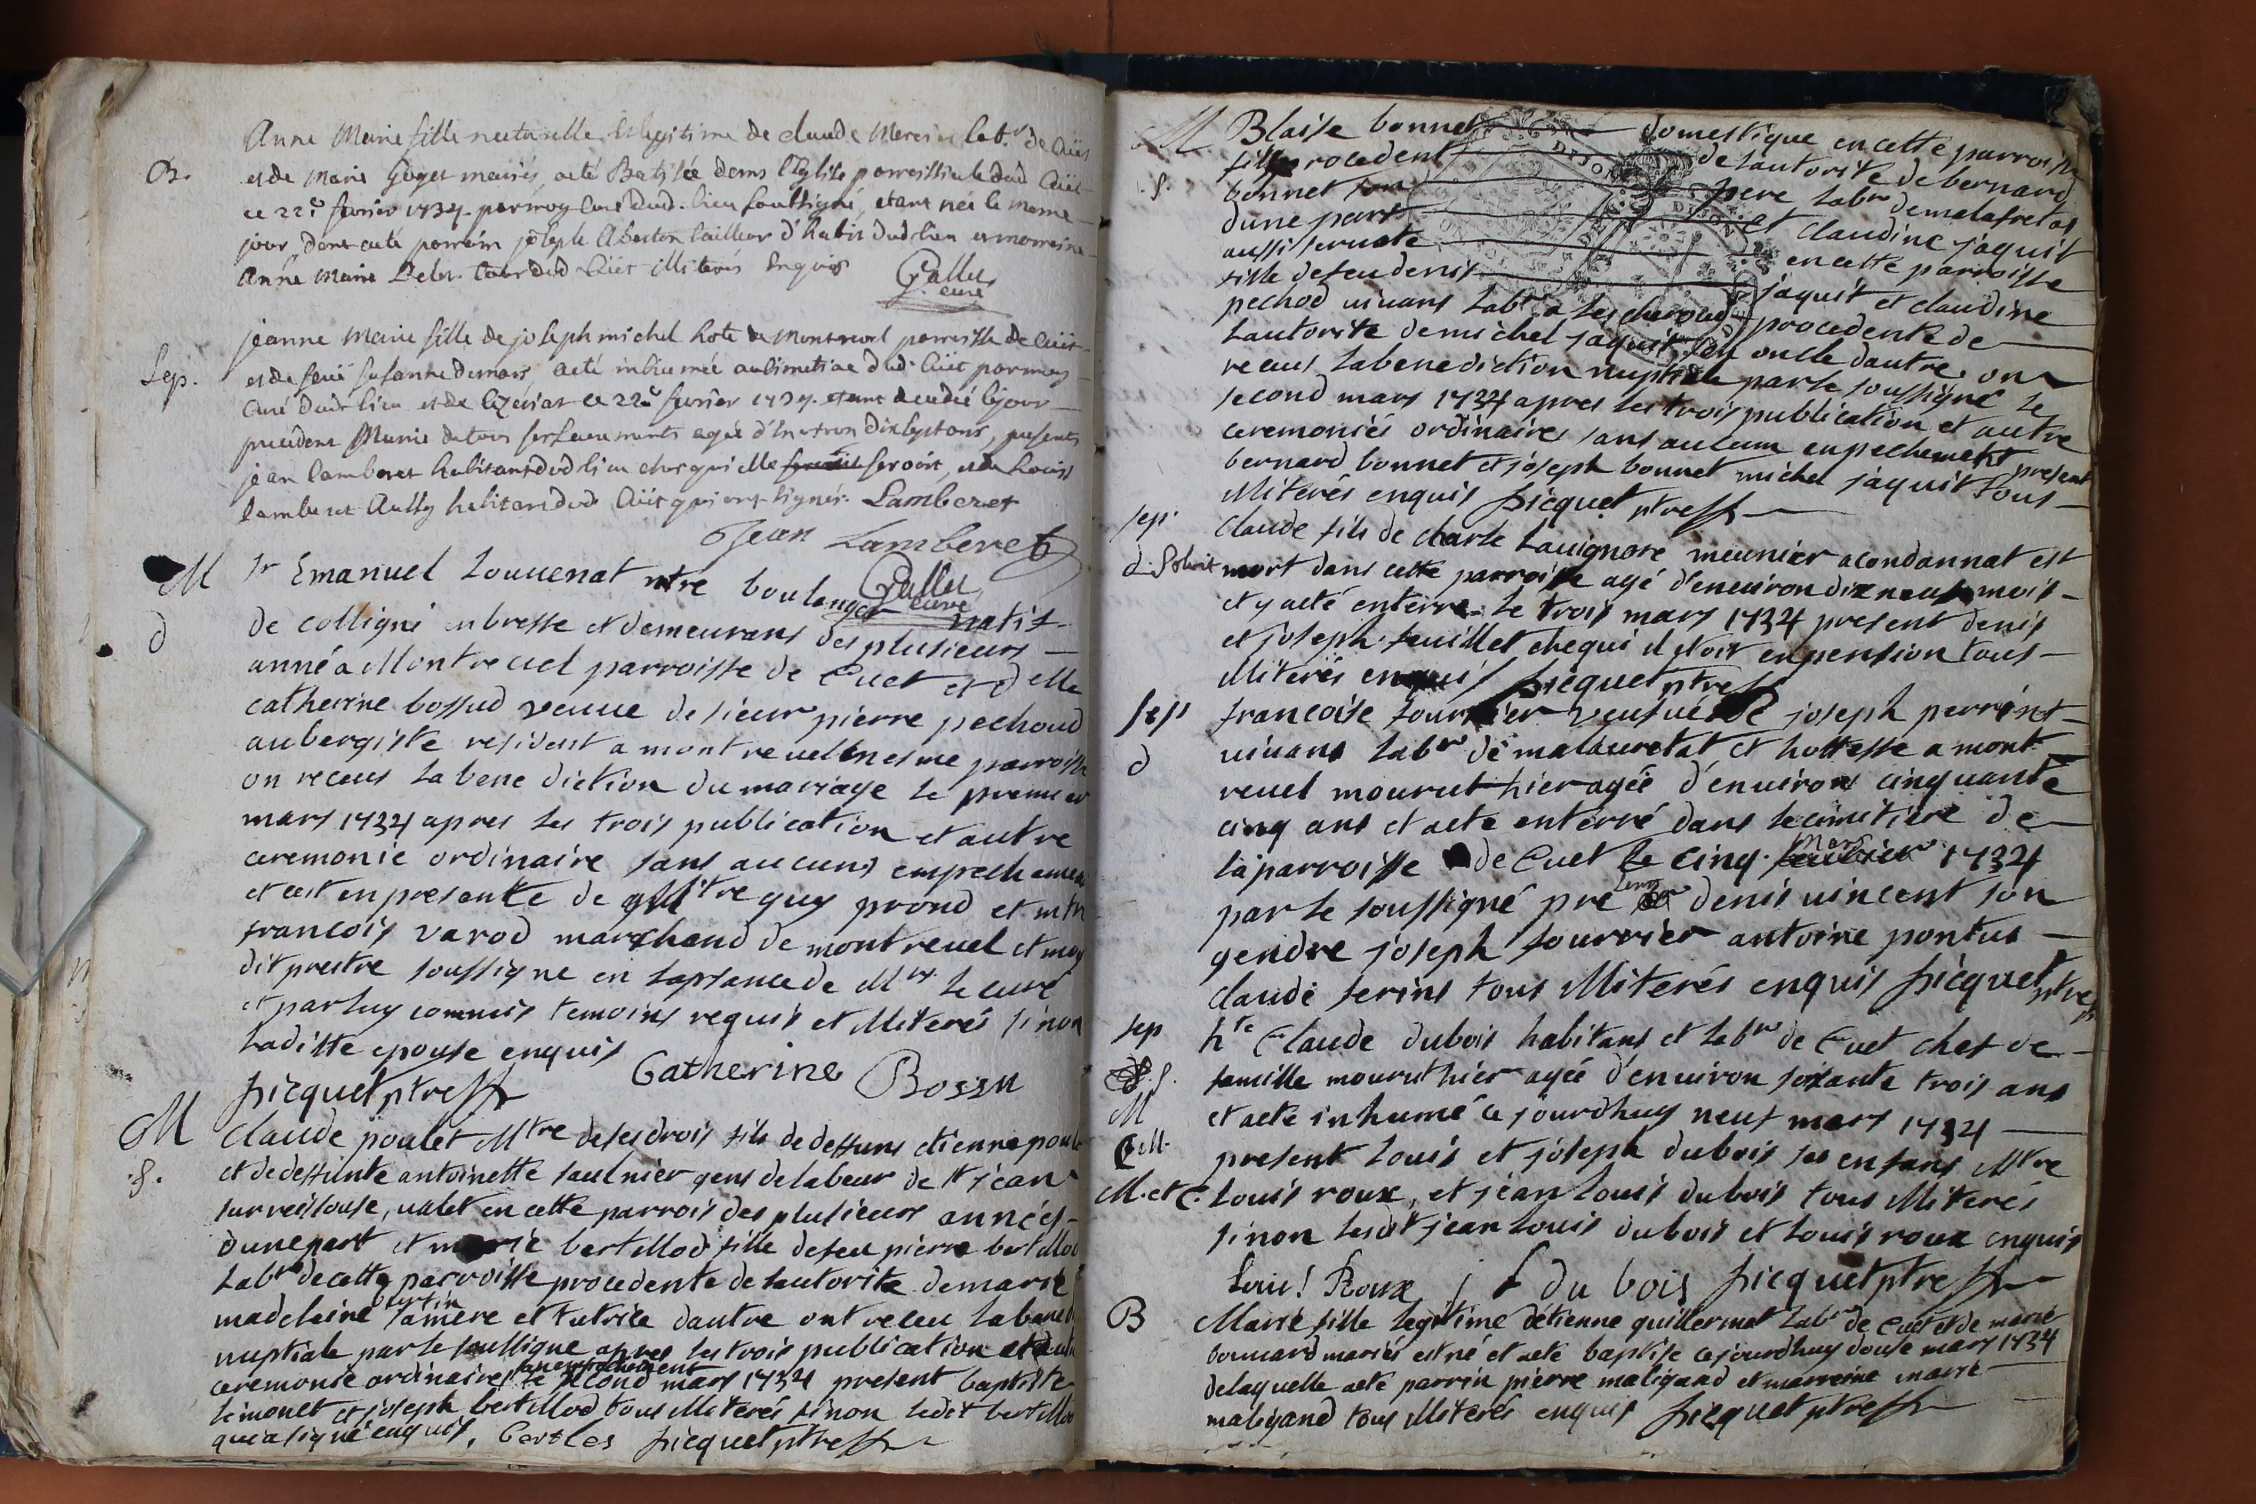 B.
Anne Marie fille naturelle et legitime de claude lab.r de Cüet
et de Marie Goget mariés, a eté Batisée dans l'Eglise parroissiale dud Cüet
ce 22.e fevrier 1734. par moy Curé dud. lieu soussigné, etant née le meme
jour, dont a eté parrain joseph tailleur d'habit dud lieu et marraine
Anne Marie dud Cüet illiterés Enquis Gallu
curé
Sep.
jeanne Marie fille de joseph michel hote de Montrevel parroisse de Cüet
et de feuë susanne a eté inhumée au cimetiere dud. Cüet par moy
Curé dudt lieu et de ce 22.e fevrier 1734. etant decedée le jour
precedent Munie de tous ses sacrements agée d'Environ dix presents
jean lamberet habitant dud lieu chez qui elle servoit, et de Louis
lamberet habitant dud Cüet qui ont signés. Lamberet
Jean Lamberet
Gallu
curé
M
d
Sr Emanuel Louuenat mtre boulanger natif
de colligni en bresse et demeurans des plusieurs
anné a Montreuel parroisse de Cuet et delle
catherine bossud veuue de sieur pierre pechoud
aubergiste resident a montreuel mesme parroisse
on receus la bene diction du mariage le premier
mars 1734 apres les trois publication et autre
ceremonie ordinaire sans aucuns empechement
et cest en presente de guy prond et mtre
francois varod marchand de montreuel et moy
dit prestre soussigne en lapsance de Mr le curé
et par luy commis temoins requis et illiterés sinon
laditte epouse enquis
Catherine Bossu
picquet ptre
M
.S.
Claude poulet Mtre de ses drois fils de deffuns etienne poulet
et de deffunte antoinette saulnier gens de labeur de st jean
sur reissouse, ualet en cette parrois des plusieurs années
dune part et marie bertillod fille de feu pierre bertillod
labr de cette parroisse procedente de lautorite de marie
madelaine sa mere et tutrice dautre ont receu la bened
nuptiale par le soussigne apres les trois publication et autre
sans empechement
ceremonie ordinaires le second mars 1734 present baptiste
limonet et joseph bertillod tous illiterés sinon ledit bertillod
qui a signé enquis, picquet ptre
M
.S.
Blaise bonnet domestique en cette parroisse
fils procedent de lautorite de bernard
bonnet son pere labr de malafretas
dune part et claudine jaquit
aussi seruante en cette parroisse
fille de feu denis jaquit et claudine
pechod uiuans labr a procedente de
lautorite de michel jaquit son oncle dautre on
receus la benediction nuptiale par le soussigné le
second mars 1734 apres les trois publication et autre
ceremoniés ordinaires sans aucun enpechement present
bernard bonnet et joseph bonnet michel jaquit tous
illiterés enquis picquet ptre
sep.
Claude fils de charle Lauignore meunier a condannat est
mort dans cette parroisse agé d'enuiron dix neuf mois
et y a eté enterre le trois mars 1734 present denis
et joseph feuillet che qui il etoit en pension tous
illiterés enquis picquet ptre
sep
d
francoise fourrier veufue de joseph perrint
uiuans labr de malauretat et hottesse a mont
reuel mourut hier agée d'enuiron cinquante
cinq ans et a ete enterré dans le cimitiere de
la parroisse de Cuet le cinq. mars 1734
par le soussigné pre denis uincent son
gendre joseph fourrier antoine pontus
claude serins tous illiterés enquis picquet ptre
sep
M
M. et C.
hte Claude dubois habitans et labr de Cuet chef de
famille mourut hier agée d'enuiron soixante trois ans
et a eté inhumé ce jourdhuy neuf mars 1734
present Louis et joseph dubois ses enfans Mtre
Louis roux, et jean louis dubois tous illiterés
sinon lesdt jean louis dubois et louis roux enquis
Louis Roux j l du bois picquet ptre
B
Marie fille legitime détienne guillermet labr de Cuet et de marie
bonnard mariés est né et a eté baptise ce jourdhuy douse mars 1734
de laquelle a eté parrin pierre maligand et marreine marie
maligand tous illiterés enquis picquet ptre